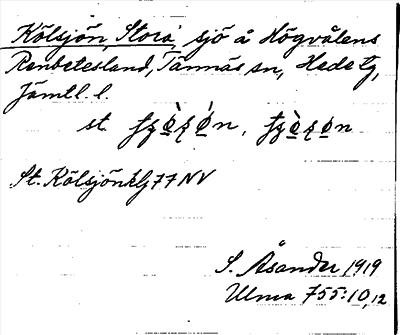 Kölsjön, Stora, sjö å Högvålens
Renbetesland, Tännäs sn, Hede tg,
Jämtl. l.
st.
St. Kölsjön blg 77 NV
S. Åsander 1919
Ulma 755:10,12